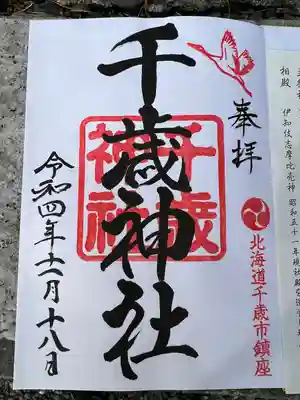 奉拝
北海道千歳市鎮座
千歳神社
千歳
神社
令和四年十一月十八日
相殿
伊知伎志摩比売神